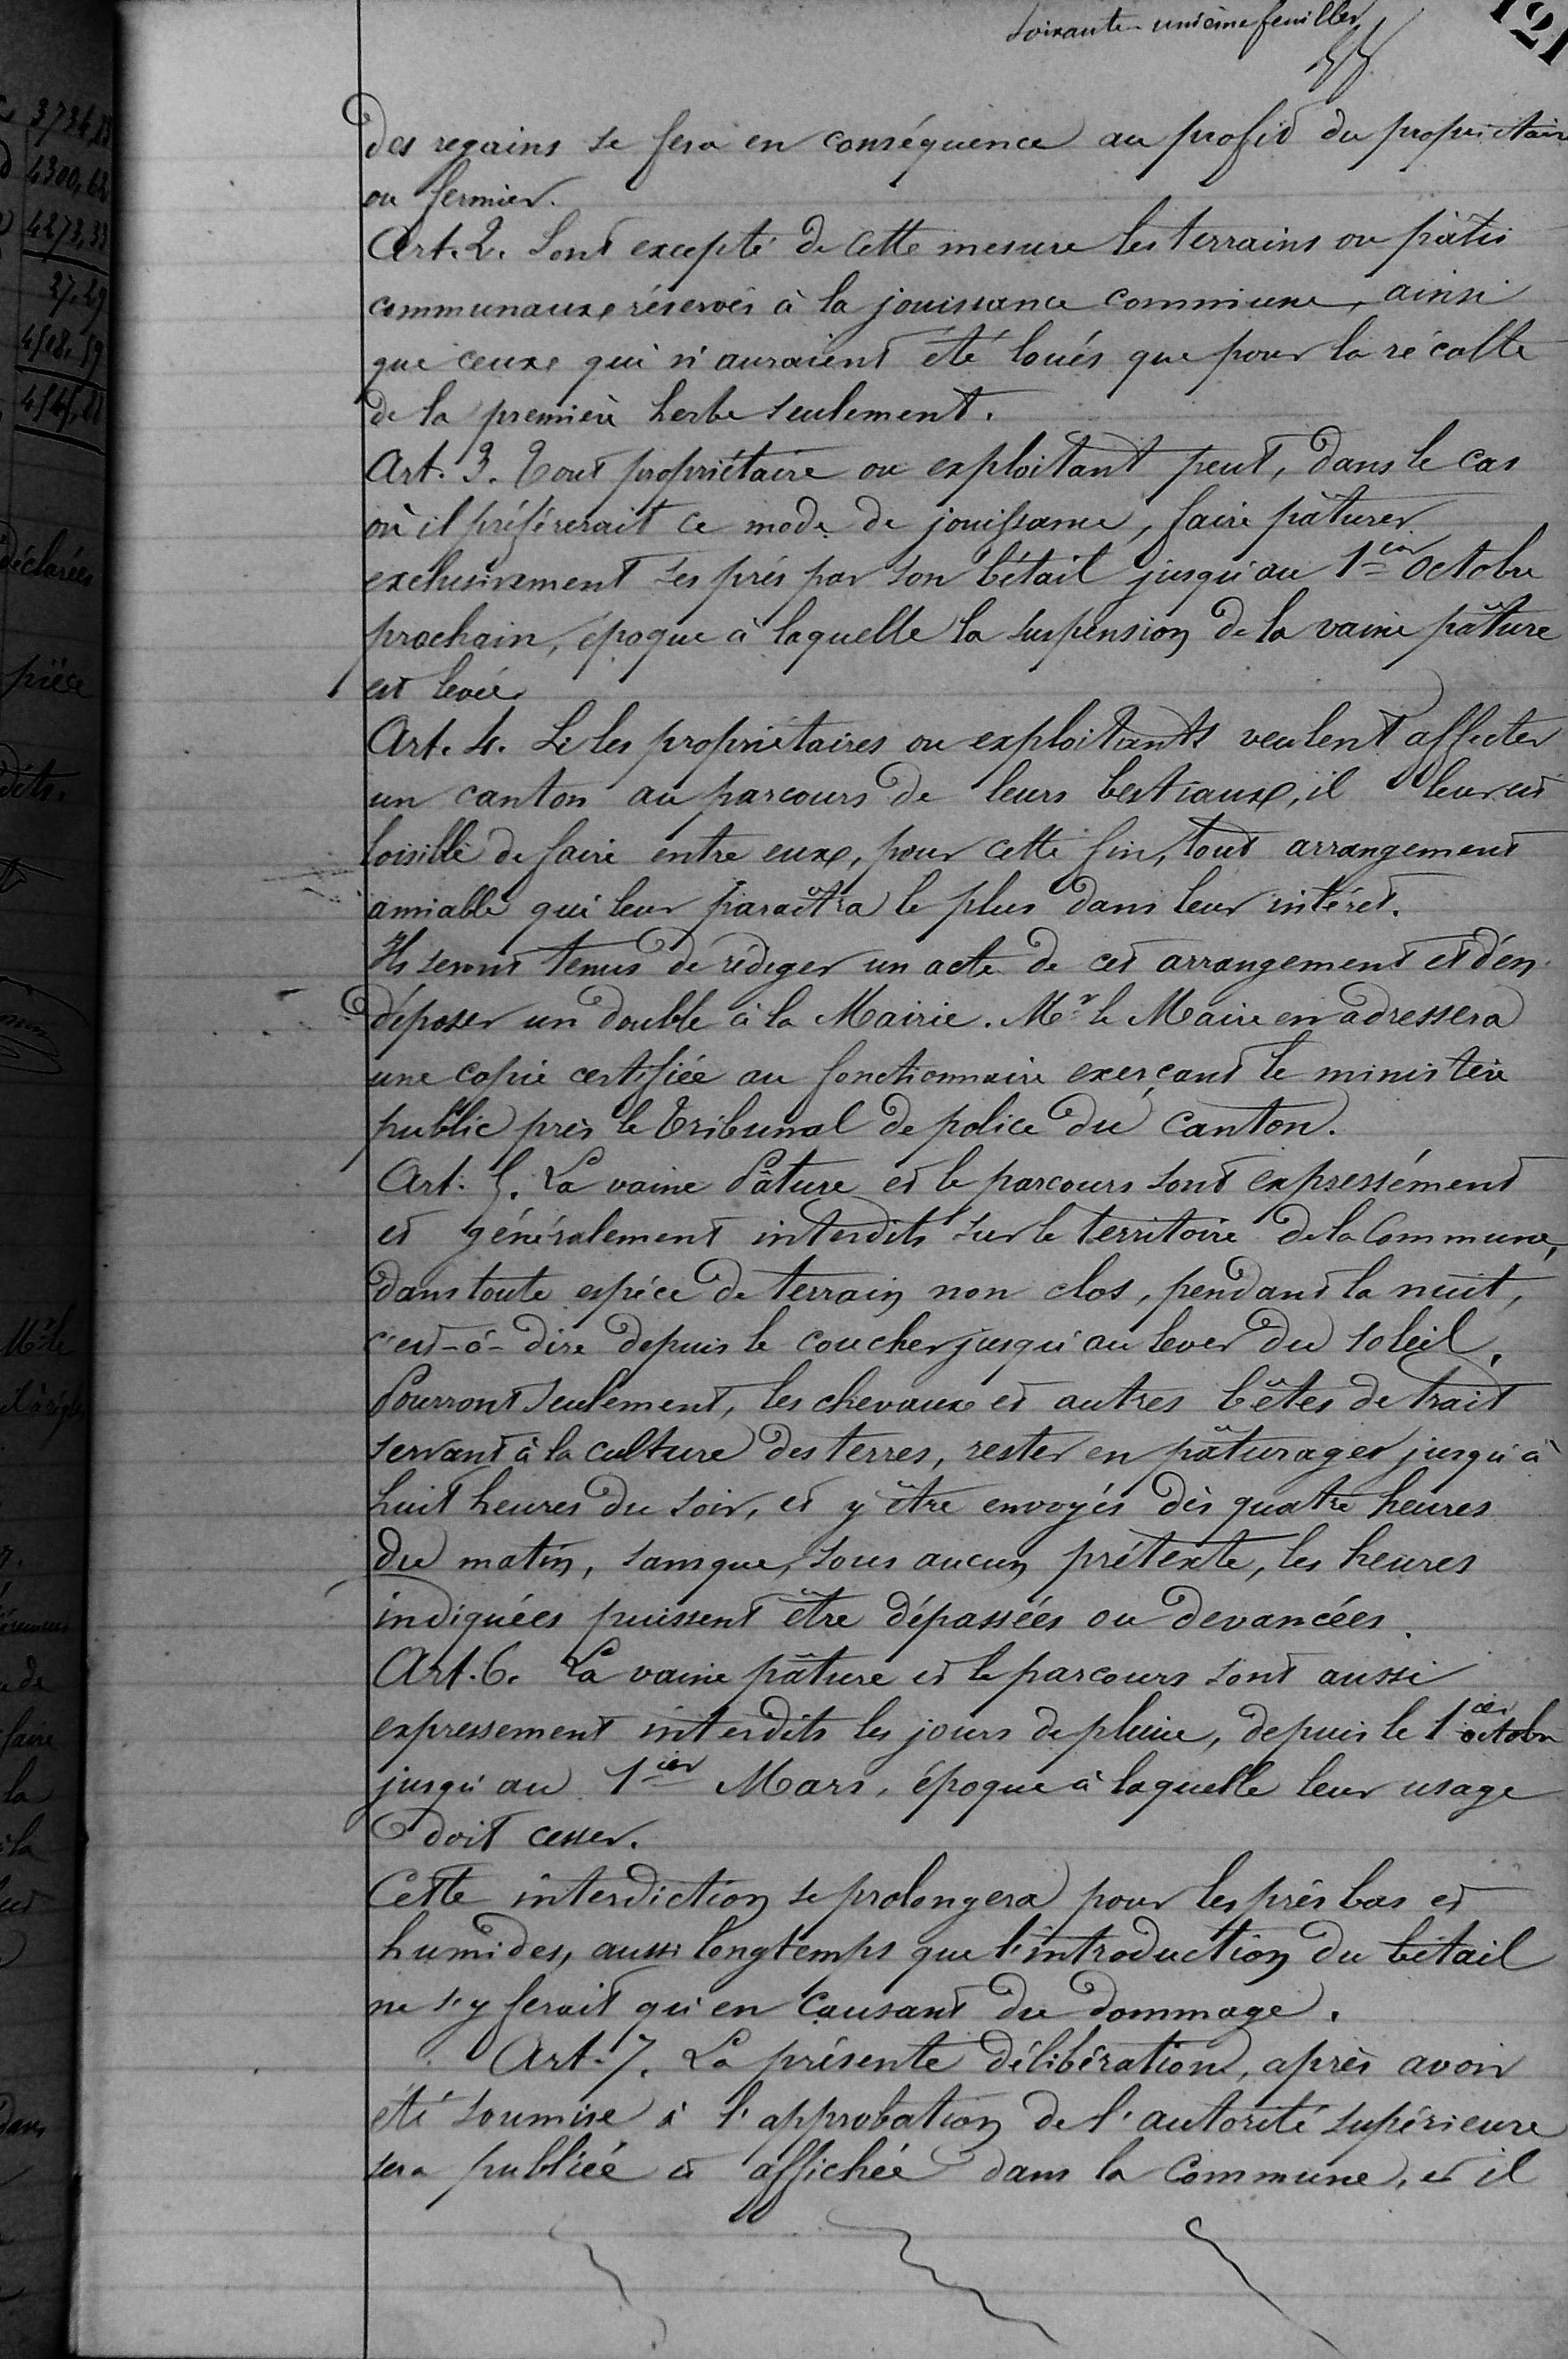 soixante-unième feuillet
121
des regains se fera en conséquence au profit du propriétaire
ou fermier.
Art. 2. Sont excepté de cette mesure les terrains ou pâtis
communaux, réservés à la jouissance commune, ainsi
que ceux qui n'auraient été loués que pour la récolte
de la première herbe seulement.
Art. 3. Tout propriétaire ou exploitant peut, dans le cas
où il préférerait ce mode de jouissance, faire pâturer
exclusivement ses prés par son bétail jusqu'au 1ier Octobre
prochain, époque à laquelle la suspension de la vaine pâture
est levée
Art. 4. Si les propriétaires ou exploitants veulent affecter
un canton au parcours de leurs bestiaux, il leur est
loisible de faire entre eux, pour cette fin, tout arrangement
amiable qui leur paraîtra le plus dans leur intérêt.
Ils seront tenus de rédiger un acte de cet arrangement et d'en
déposer un double à la Mairie. Mr le Maire en adressera
une copie certifiée au fonctionnaire exerçant le ministère
public près le Tribunal de police du Canton.
Art. 5. La vaine Pâture et le parcours sont expressément
et généralement interdits sur le territoire de la Commune,
dans toute espèce de terrain non clos, pendant la nuit,
c'est-à-dire depuis le coucher jusqu'au lever du soleil.
Pourront seulement, les chevaux et autres bêtes de trait
servant à la culture des terres, rester en pâturages jusqu'à
huit heures du soir, et y être envoyés dès quatre heures
du matin, sans que, sous aucun prétexte, les heures
indiquées puissent être dépassées ou devancées.
Art. 6. La vaine pâture et le parcours sont aussi
expressement interdits les jours de pluie, depuis le 1er octobre
jusqu'au 1ier Mars, époque à laquelle leur usage
doit cesser.
Cette interdiction se prolongera pour les prés bas et
humides, aussi longtemps que l'introduction du bétail
ne s'y ferait qu'en causant du dommage.
Art. 7. La présente délibération, après avoir
été soumise à l'approbation de l'autorité supérieure
sera publiée et affichée dans la Commune, et il